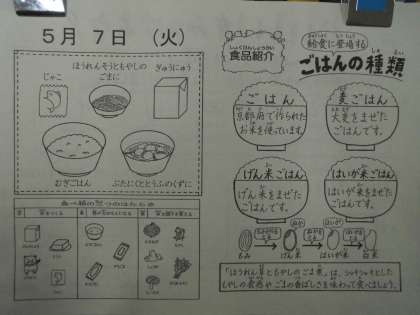 5月7日(火)
ほうれんそうともやしの
ごまに
ぎゅうにゅう
じゃこ
むぎごはん
ぶたにくととうふのくずに
食べ物の三つのはたらき
しょくひんしょうかい
食品紹介
給食に登場する
ごはんの種類
ごはん
京都府で作られた
お米を使っています。
麦ごはん
大麦をまぜた
ごはんです。
げん米ごはん
げん米をまぜた
ごはんです。
はいが米ごはん
はいが米をまぜた
ごはんです。
もみ
げん米
はいが米
白米
「ほうれん草ともやしのごま煮」は、シャキシャキとした
もやしの食感やごまの香ばしさを味わって食べましょう。